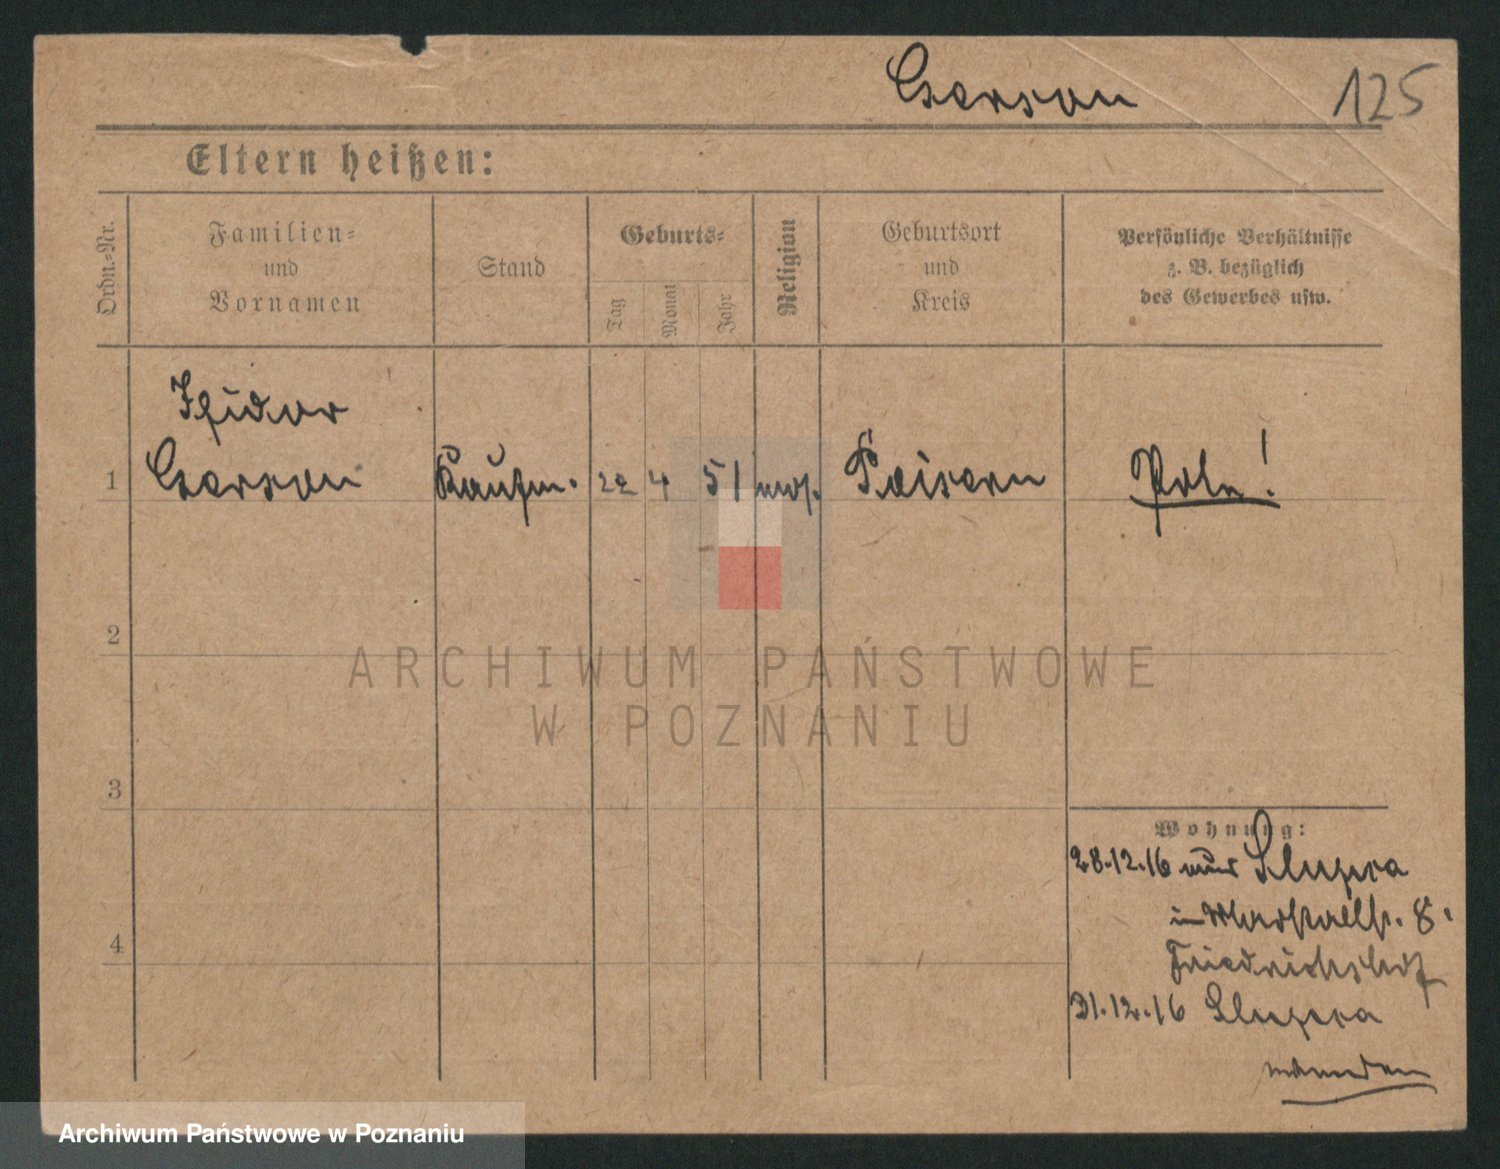 Gerson
125
Eltern heißen:
Ordn.-Nr.
Familien-
und
Vornamen
Stand
Geburts-
Tag
Monat
Jahr
Religion
Geburtsort
und
Kreis
Persönliche Verhältnisse
z. B. bezüglich
des Gewerbes usw.
Isidor
1 Gerson Kaufm. 22 4 51 mos. Peisern Poln!
2
3
4
Wohnung:
28.12.16 Slupca
in Marstallstr. 8.
Friedrichshof
31.12.16 Slupca
ARCHIWUM PAŃSTWOWE
W POZNANIU
Archiwum Państwowe w Poznaniu